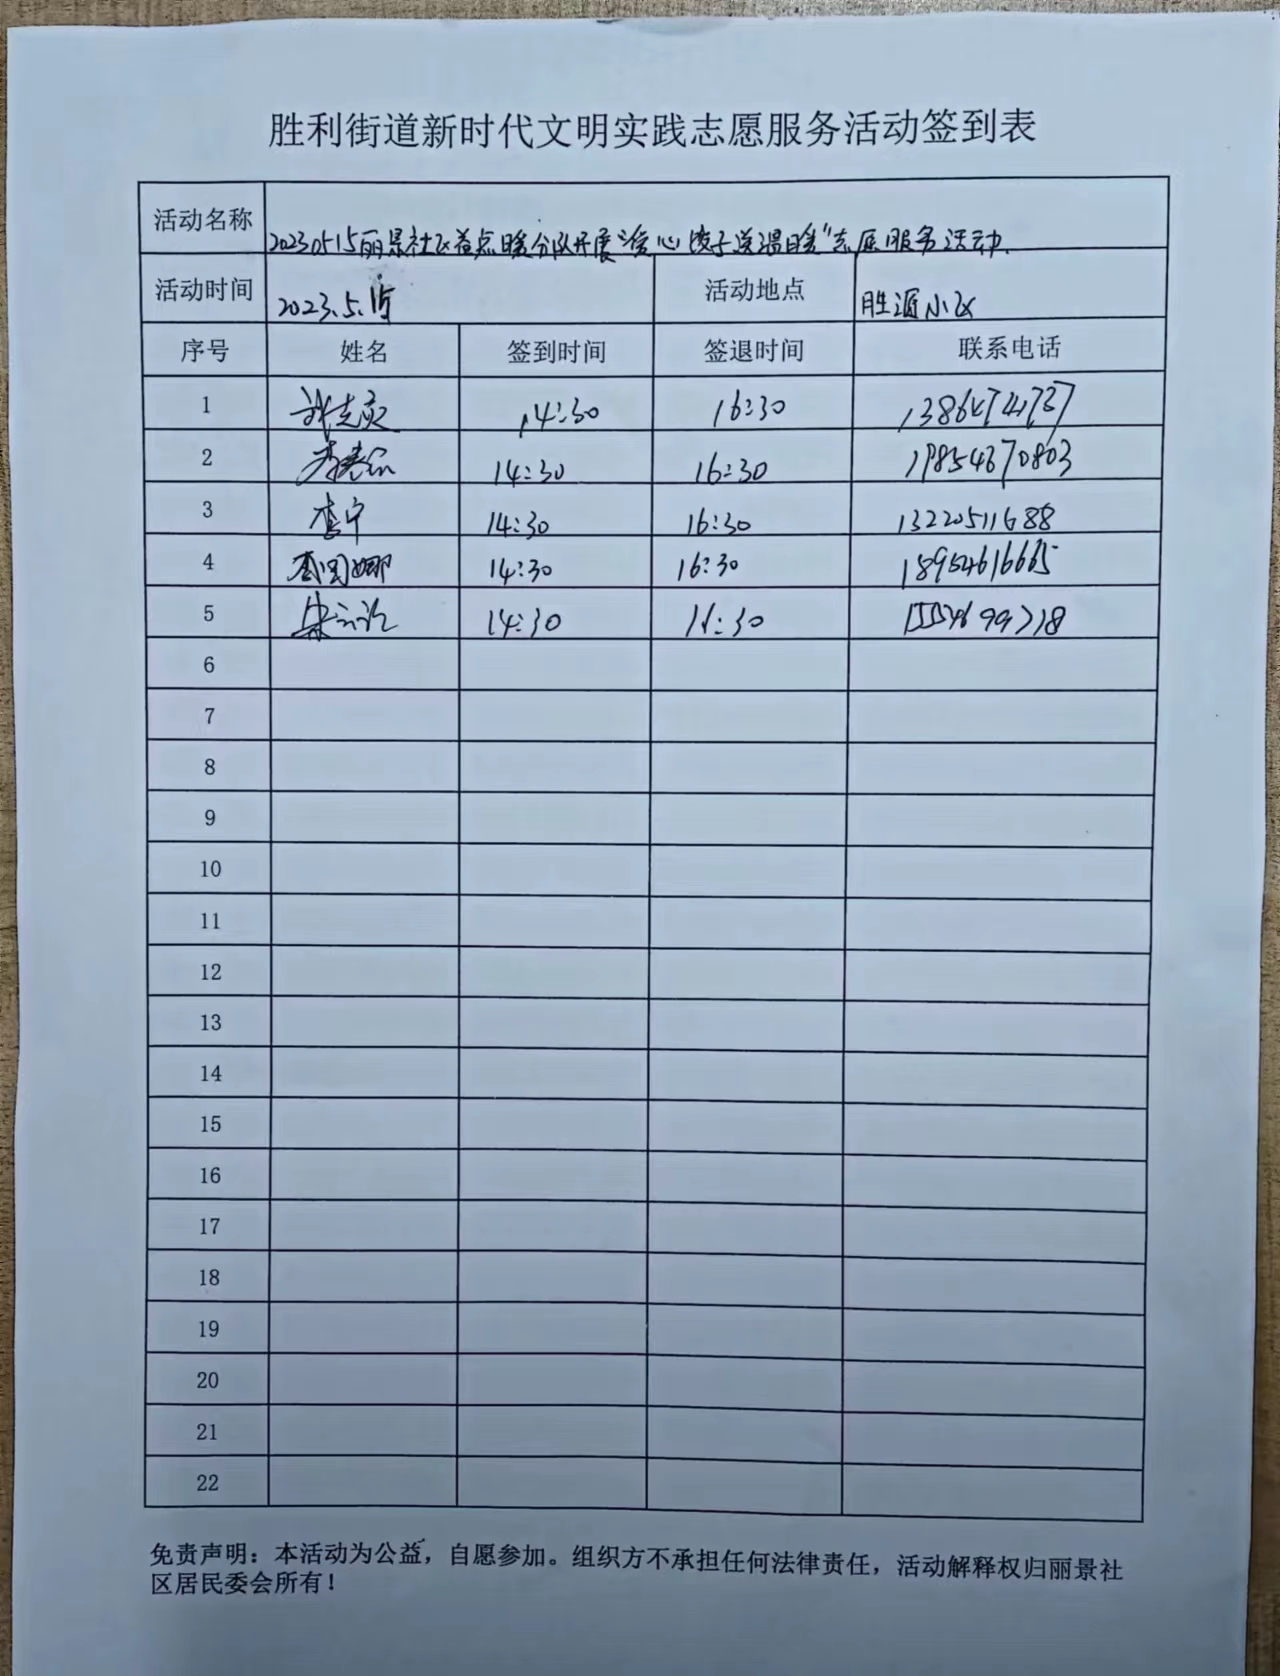 胜利街道新时代文明实践志愿服务活动签到表
活动名称 20230515丽景社区益点暖分队开展"爱心饺子送温暖"志愿服务活动.
活动时间 2023.5.15 活动地点 胜源小区
序号 姓名 签到时间 签退时间 联系电话
1 14:30 16:30
2 14:30 16:30 19854670803
3 李宁 14:30 16:30 13220511688
4 14:30 16:30 18954616665
5 14:30 16:30
6
7
8
9
10
11
12
13
14
15
16
17
18
19
20
21
22
免责声明：本活动为公益，自愿参加。组织方不承担任何法律责任，活动解释权归丽景社
区居民委会所有！